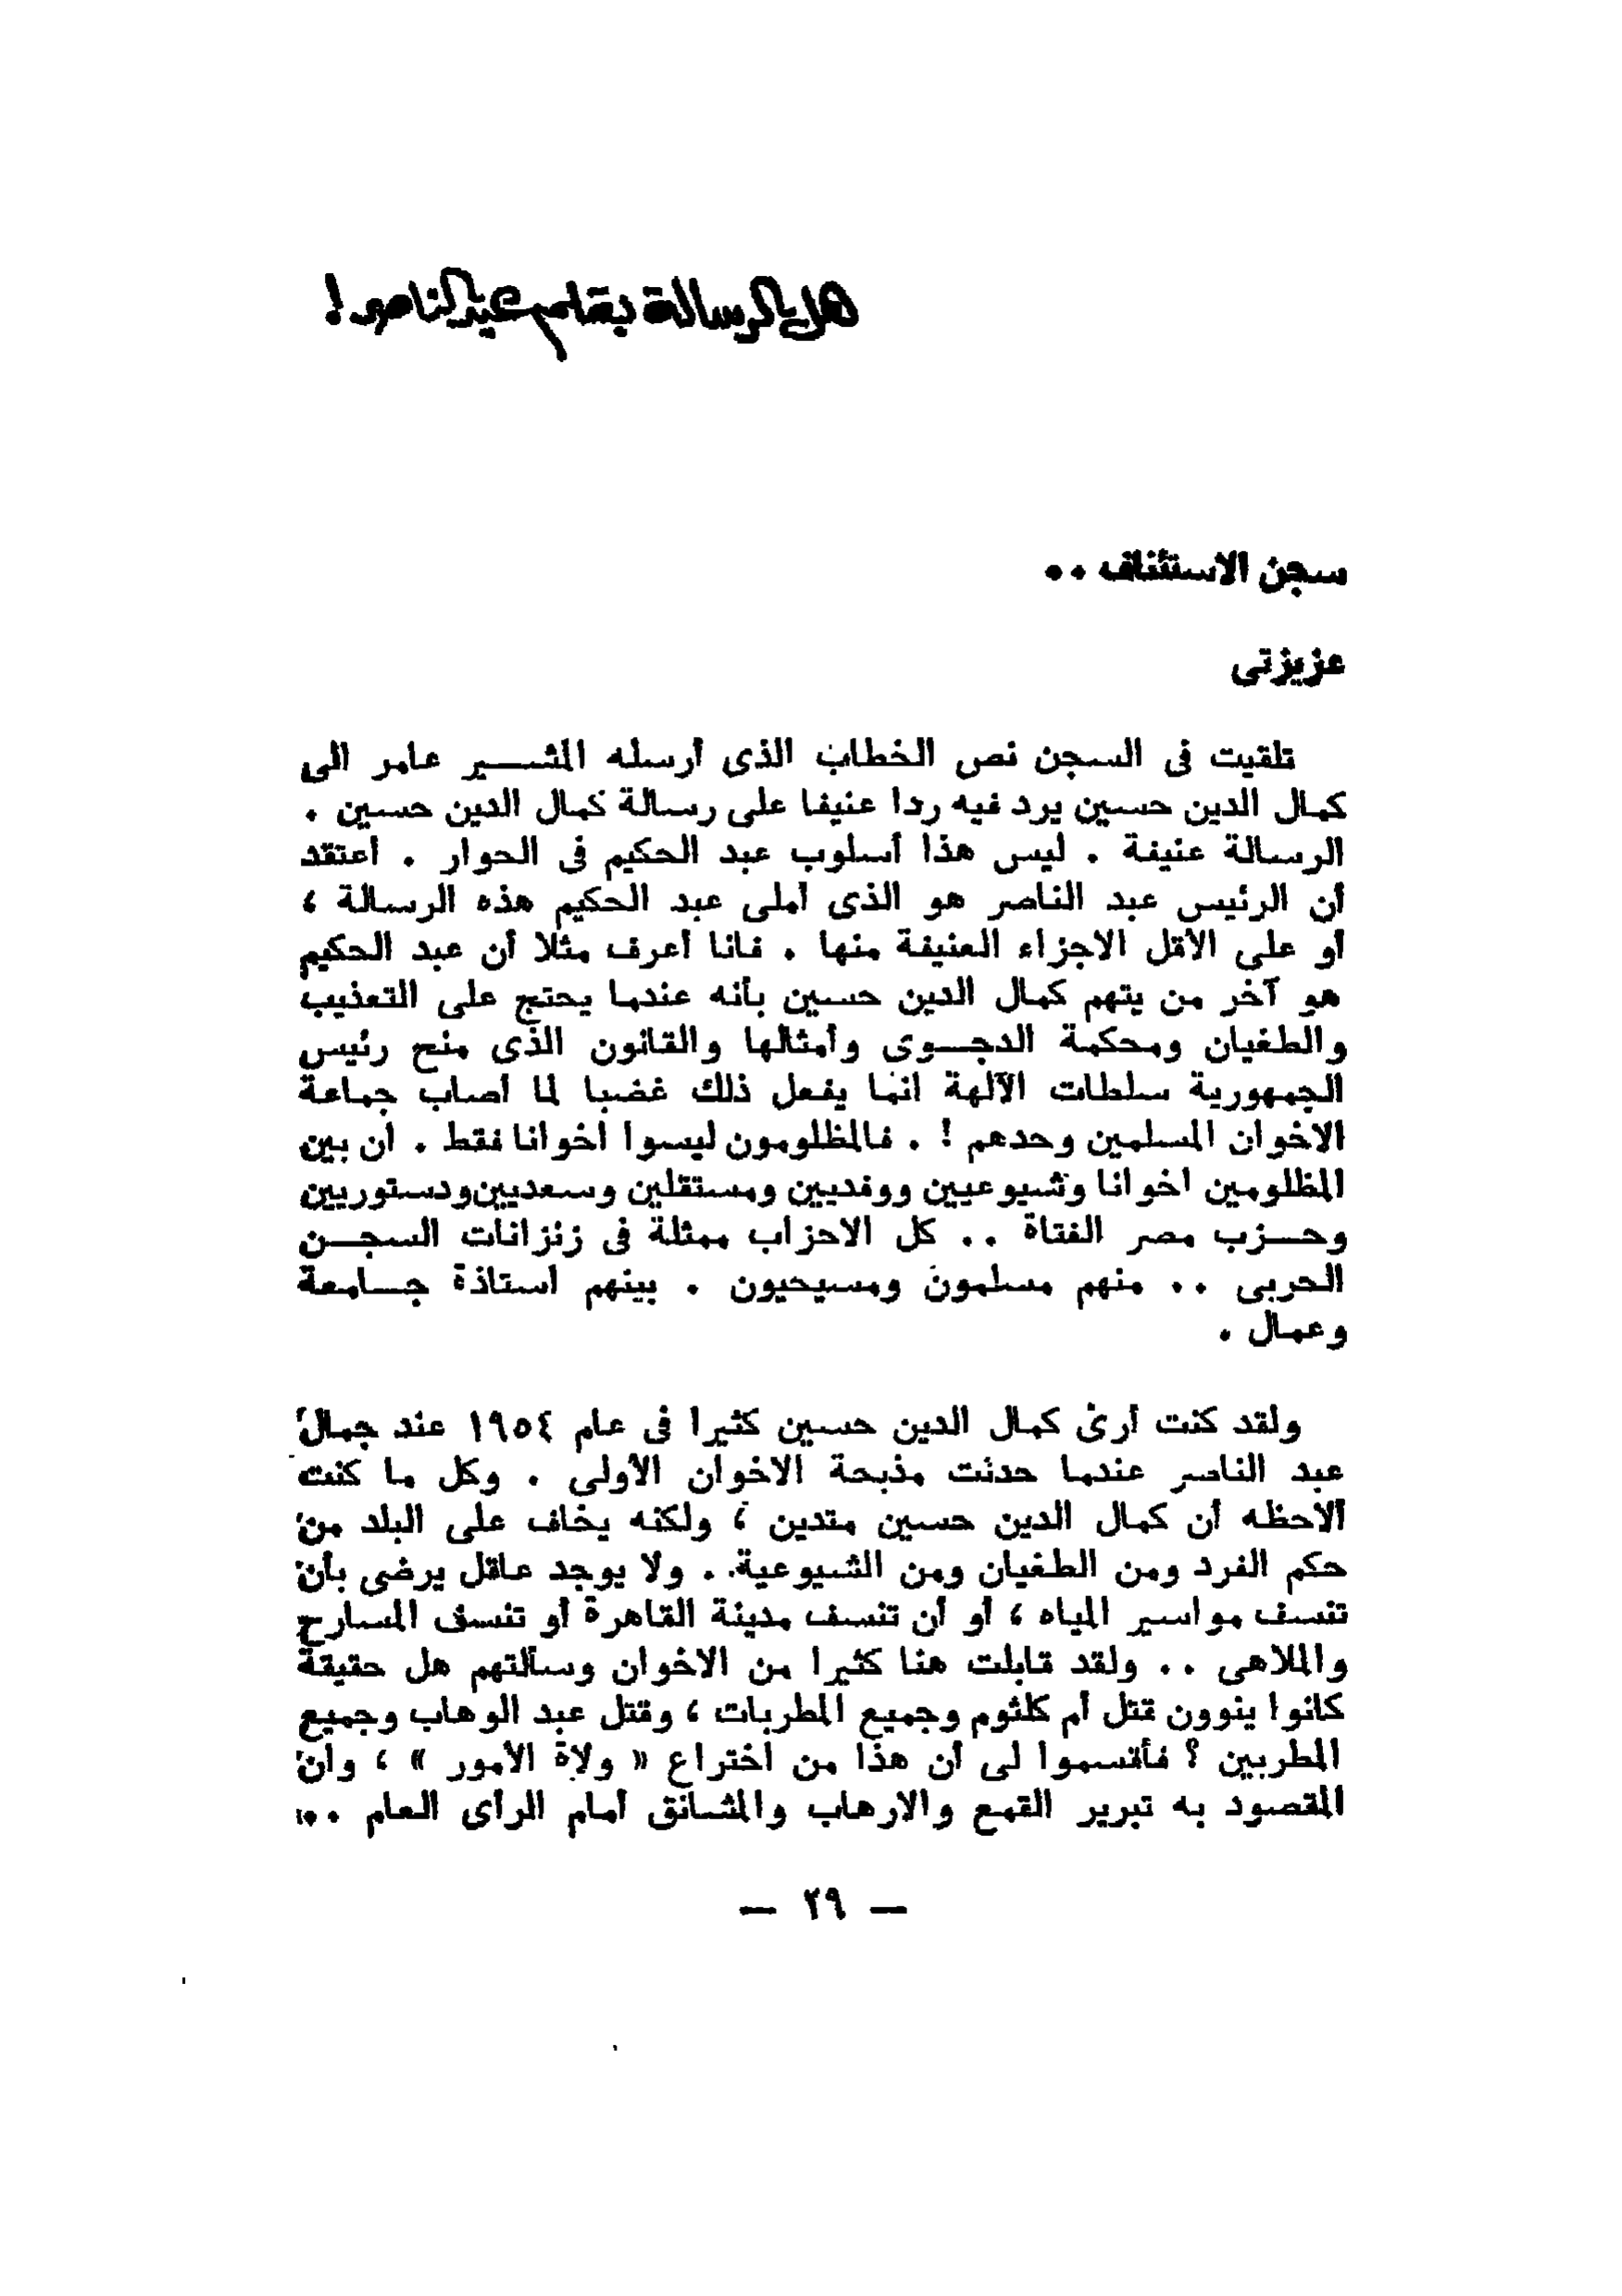 هل الرسالة بقلم عبد الناصر !
سجن الاستئناف ٠٠
عزيزتى
تلقيت فى السجن نص الخطاب الذى أرسله المشير عامر الى
كمال الدين حسين يرد فيه ردا عنيفا على رسالة كمال الدين حسين .
الرسالة عنيفة . ليس هذا أسلوب عبد الحكيم فى الحوار . اعتقد
أن الرئيس عبد الناصر هو الذى أملى عبد الحكيم هذه الرسالة ،
أو على الأقل الاجزاء العنيفة منها . فانا أعرف مثلا أن عبد الحكيم
هو آخر من يتهم كمال الدين حسين بأنه عندما يحتج على التعذيب
والطغيان ومحكمة الدجوى وأمثالها والقانون الذى منح رئيس
الجمهورية سلطات الآلهة انما يفعل ذلك غضبا لما أصاب جماعة
الاخوان المسلمين وحدهم ! . فالمظلومون ليسوا اخوانا فقط . ان بين
المظلومين اخوانا وشيوعيين ووفديين ومستقلين وسعديين ودستوريين
وحزب مصر الفتاة .. كل الاحزاب ممثلة فى زنزانات السجن
الحربى .. منهم مسلمون ومسيحيون . بينهم استاذة جامعة
وعمال .
ولقد كنت أرى كمال الدين حسين كثيرا فى عام ١٩٥٤ عند جمال
عبد الناصر عندما حدثت مذبحة الاخوان الأولى . وكل ما كنت
ألاحظه أن كمال الدين حسين متدين ، ولكنه يخاف على البلد من
حكم الفرد ومن الطغيان ومن الشيوعية . ولا يوجد عاقل يرضى بأن
تنسف مواسير المياه ، أو أن تنسف مدينة القاهرة أو تنسف المسارح
والملاهى .. ولقد قابلت هنا كثيرا من الاخوان وسألتهم هل حقيقة
كانوا ينوون قتل أم كلثوم وجميع المطربات ، وقتل عبد الوهاب وجميع
المطربين ؟ فأقسموا لى أن هذا من اختراع « ولاة الأمور » ، وأن
المقصود به تبرير القمع والارهاب والمشانق أمام الرأى العام ..
— ٢٩ —